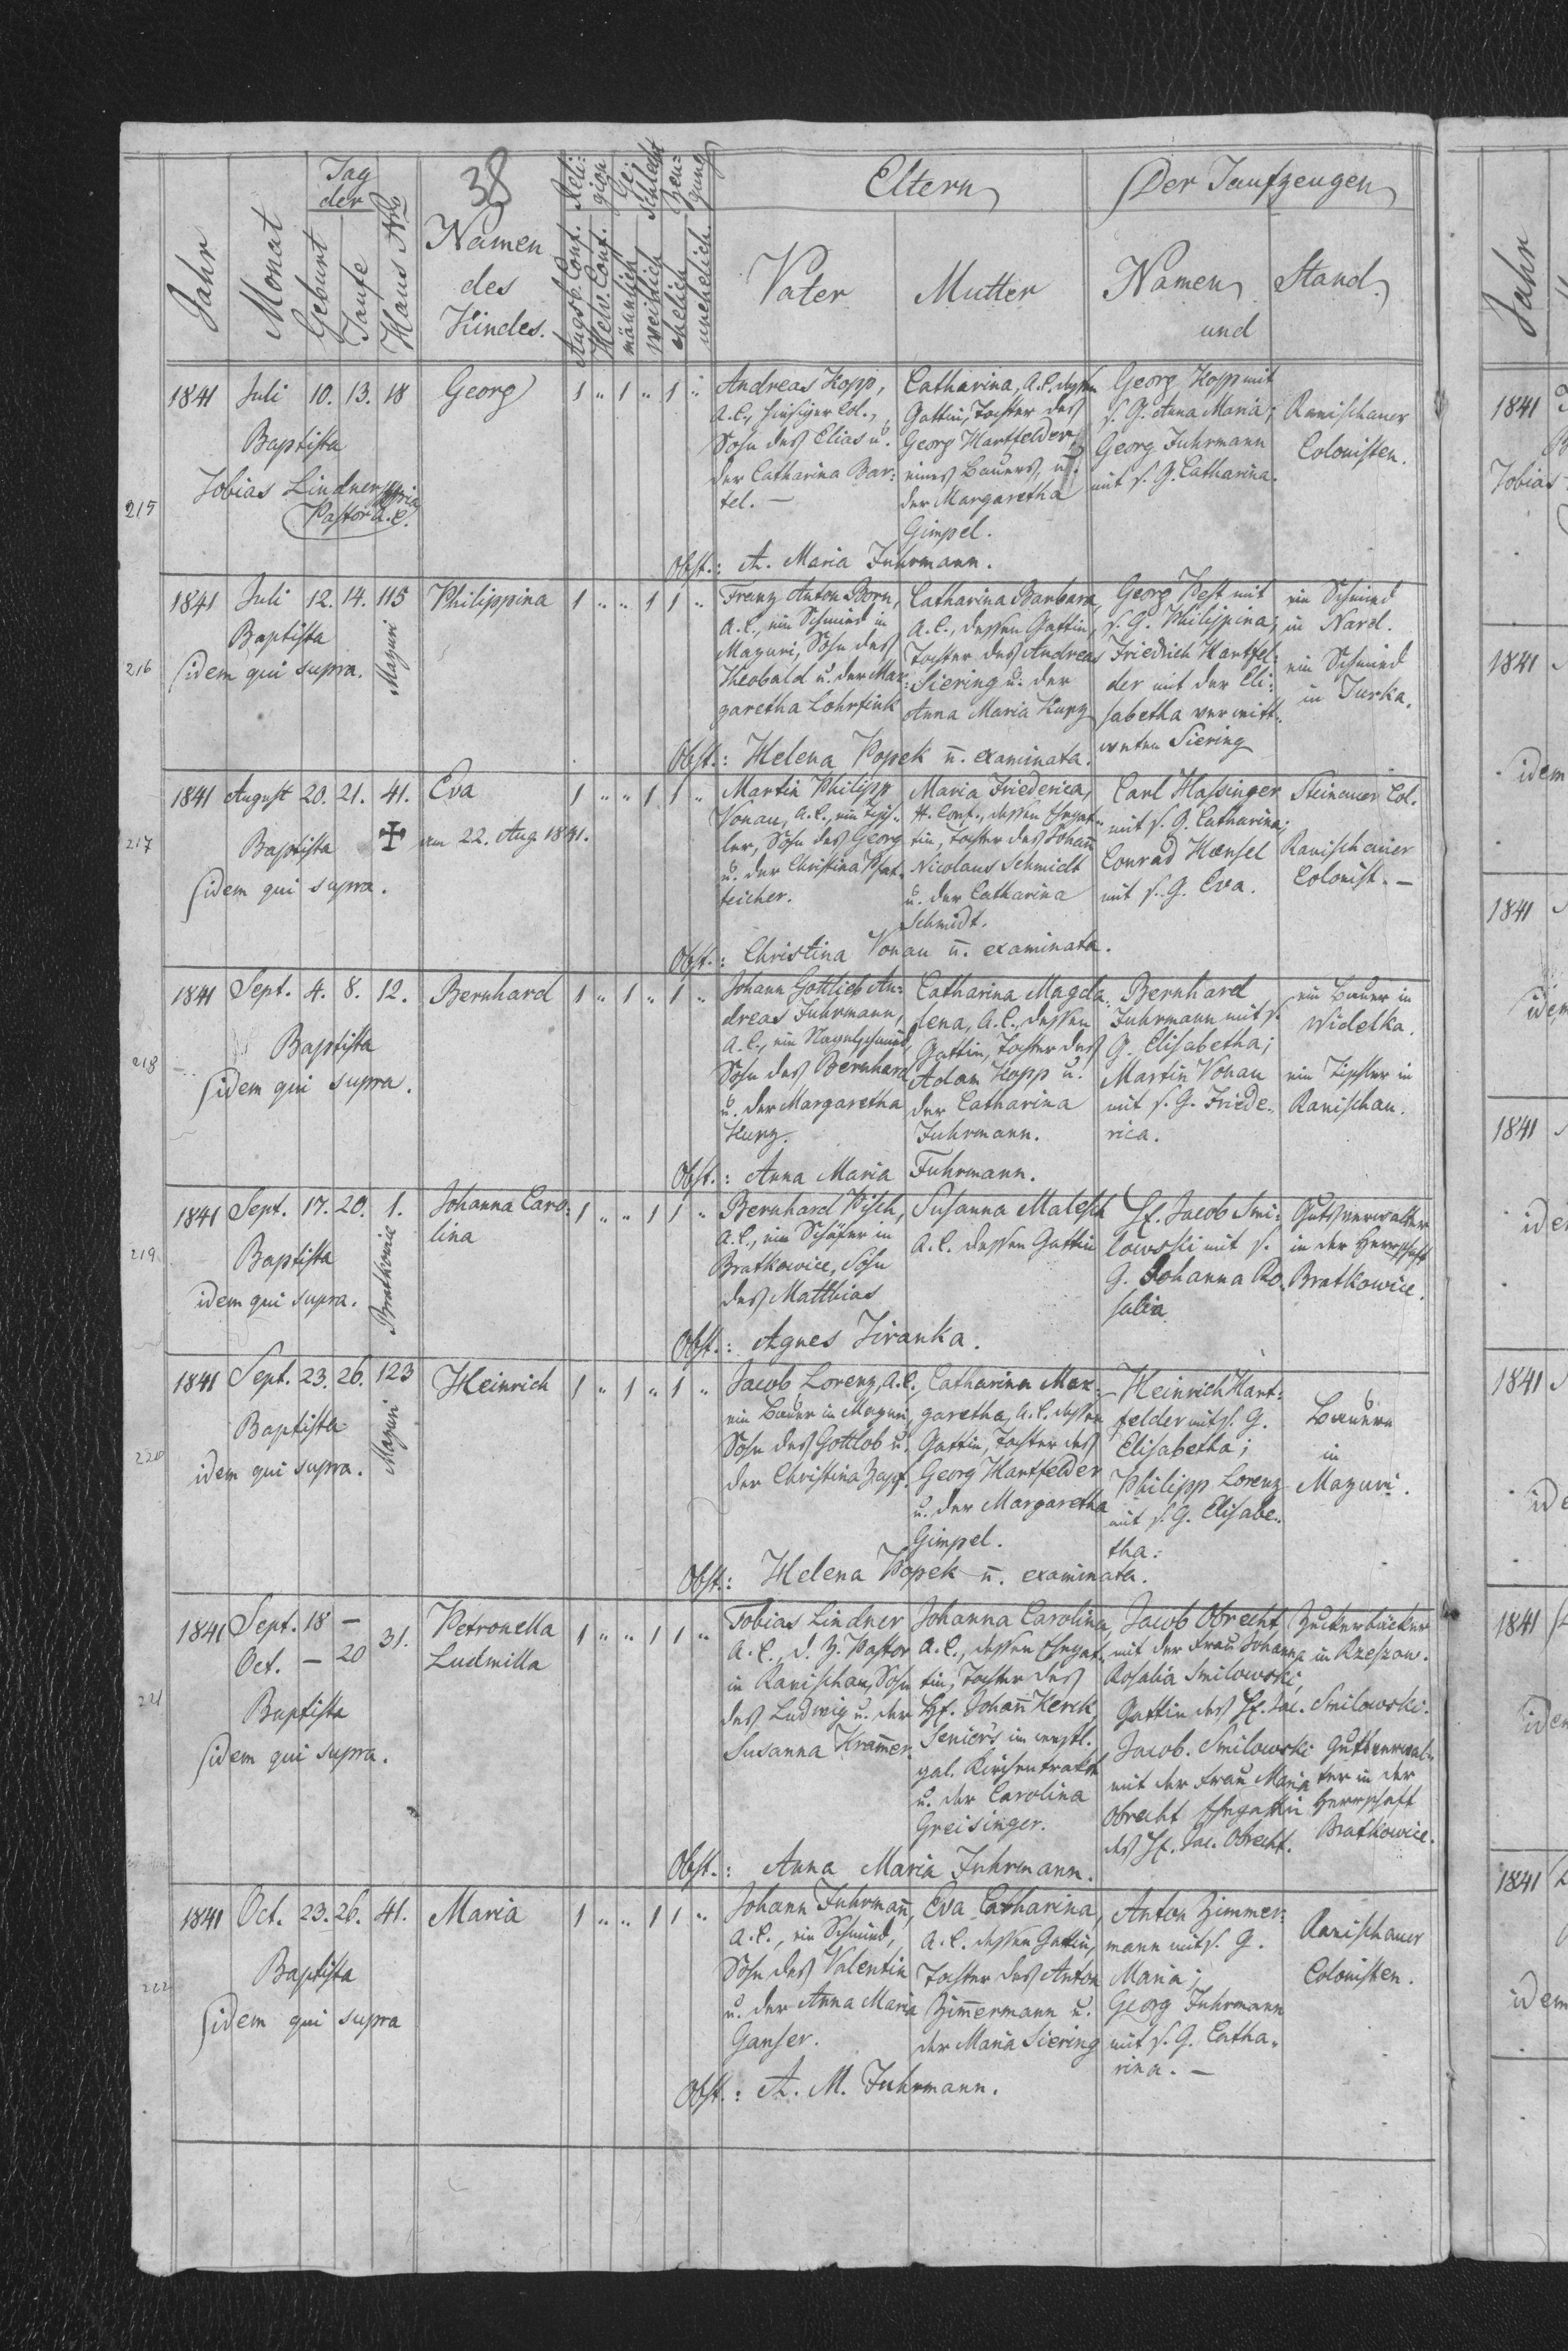 38
Jahr
Monat
Tag der
Geburt
Taufe
Haus Nro
Namen
des
Kindes.
Religion
Augsb. Conf.
Helv. Conf.
Geschlecht
männlich
weiblich
Zeugung
ehelich
unehelich
Eltern
Vater
Mutter
Der Taufzeugen
Namen
und
Stand.
215
1841 Juli 10. 13. 18 Georg 1 " 1 " 1 "
Baptista
Tobias Lindner mpria
Pastor A. C.
Andreas Kopp,
A. C., hiesiger Col.,
Sohn des Elias u.
der Catharina Bar:
tel. —
Catharina, A. C. dessen
Gattin, Tochter des
Georg Hartfelder,
eines Bauers, u.
der Margaretha
Gimpel.
Georg Kopp mit
s. G. Anna Maria;
Georg Fuhrmann
mit s. G. Catharina.
Ranischauer
Colonisten.
Obst.: A. Maria Fuhrmann.
216
1841 Juli 12. 14. 115 Philippina 1 " " 1 1 "
Mazuri
Baptista
idem qui supra.
Franz Anton Born,
A. C., ein Schmied in
Mazuri, Sohn des
Theobald u. der Mar:
garetha Lohrfink
Catharina Barbara,
A. C., dessen Gattin,
Tochter des Andreas
Siering u. der
Anna Maria Kurz
Georg Hest mit
s. G. Philippina;
Friedrich Hartfel:
der mit der Eli:
sabetha verwitt:
weten Siering
ein Schmied
in Nard.
ein Schmied
in Turka.
Obst.: Helena Popek u. examinata.
217
1841 August 20. 21. 41. Eva 1 " " 1 1 "
✠ am 22. Aug. 1841.
Baptista
idem qui supra.
Martin Philipp
Vonau, A. C., ein Tisch"
ler, Sohn des Georg
u. der Christina Pfat"
teicher.
Maria Friederica,
H. Conf., dessen Ehegat"
tin, Tochter des Johann
Nicolaus Schmidt
u. der Catharina
Schmidt.
Carl Hassinger
mit s. G. Catharina;
Conrad Hænsel
mit s. G. Eva.
Steinauer Col.
Ranischauer
Colonist. —
Obst.: Christina Vonau u. examinata.
218
1841 Sept. 4. 8. 12. Bernhard 1 " 1 " 1 "
Baptista
idem qui supra.
Johann Gottlieb An:
dreas Fuhrmann,
A. C., ein Nagelschmied,
Sohn des Bernhard
u. der Margaretha
Kurz.
Catharina Magda:
lena, A. C., dessen
Gattin, Tochter des
Adam Kopp u.
der Catharina
Fuhrmann.
Bernhard
Fuhrmann mit s.
G. Elisabetha;
Martin Vonau
mit s. G. Friede:
rica.
ein Bauer in
Widelka.
ein Tischler in
Ranischau.
Obst.: Anna Maria Fuhrmann.
219
1841 Sept. 17. 20. 1. Johanna Caro: 1 " " 1 1 "
lina
Bratkowice
Baptista
idem qui supra.
Bernhard Pisch,
A. C., ein Schäfer in
Bratkowice, Sohn
des Matthias
Susanna Malesch
A. C. dessen Gattin
H. Jacob Smi:
lowski mit s.
G. Johanna Ro:
salia
Gutsverwalter
in der Herrschaft
Bratkowice.
Obst.: Agnes Ziranka.
220
1841 Sept. 23. 26. 123 Heinrich 1 " 1 " 1 "
Mazuri
Baptista
idem qui supra.
Jacob Lorenz, A. C.
ein Bauer in Mazuri,
Sohn des Gottlob u.
der Christina Zapf.
Catharina Mar:
garetha, A. C. dessen
Gattin, Tochter des
Georg Hartfelder
u. der Margaretha
Gimpel.
Heinrich Hart:
felder mit s. G.
Elisabetha;
Philipp Lorenz
mit s. G. Elisabe:
tha.
Bauern
in
Mazuri.
Obst.: Helena Popek u. examinata.
221
1841 Sept. 18 — 31. Petronella 1 " " 1 1 "
Oct. — 20 Ludmilla
Baptista
idem qui supra.
Tobias Lindner
A. C., d. Z. Pastor
in Ranischau, Sohn
des Ludwig u. der
Susanna Kramer.
Johanna Carolina,
A. C., dessen Ehegat:
tin, Tochter des
H. Johann Kerck,
Senior's im westl.
gal. Kirchentrakt
u. der Carolina
Greisinger.
Jacob Obrecht
mit der Frau Johanna
Rosalia Smilowski,
Gattin des H. Jac. Smilowski.
Jacob Smilowski
mit der Frau Maria
Obrecht Ehegattin
des H. Jac. Obrecht.
Zuckerbäcker
in Rzeszow.
Gutsverwal:
ter in der
Herrschaft
Bratkowice.
Obst.: Anna Maria Fuhrmann.
222
1841 Oct. 23. 26. 41. Maria 1 " " 1 1 "
Baptista
idem qui supra
Johann Fuhrmann,
A. C., ein Schmied,
Sohn des Valentin
u. der Anna Maria
Ganser.
Eva Catharina,
A. C. dessen Gattin,
Tochter des Anton
Zimmermann u.
der Maria Siering
Anton Zimmer:
mann mit s. G.
Maria;
Georg Fuhrmann
mit s. G. Catha:
rina. —
Ranischauer
Colonisten.
Obst.: A. M. Fuhrmann.
Jahr
1841
Tobias
1841
idem
1841
idem
1841
1841
1841
1841
idem